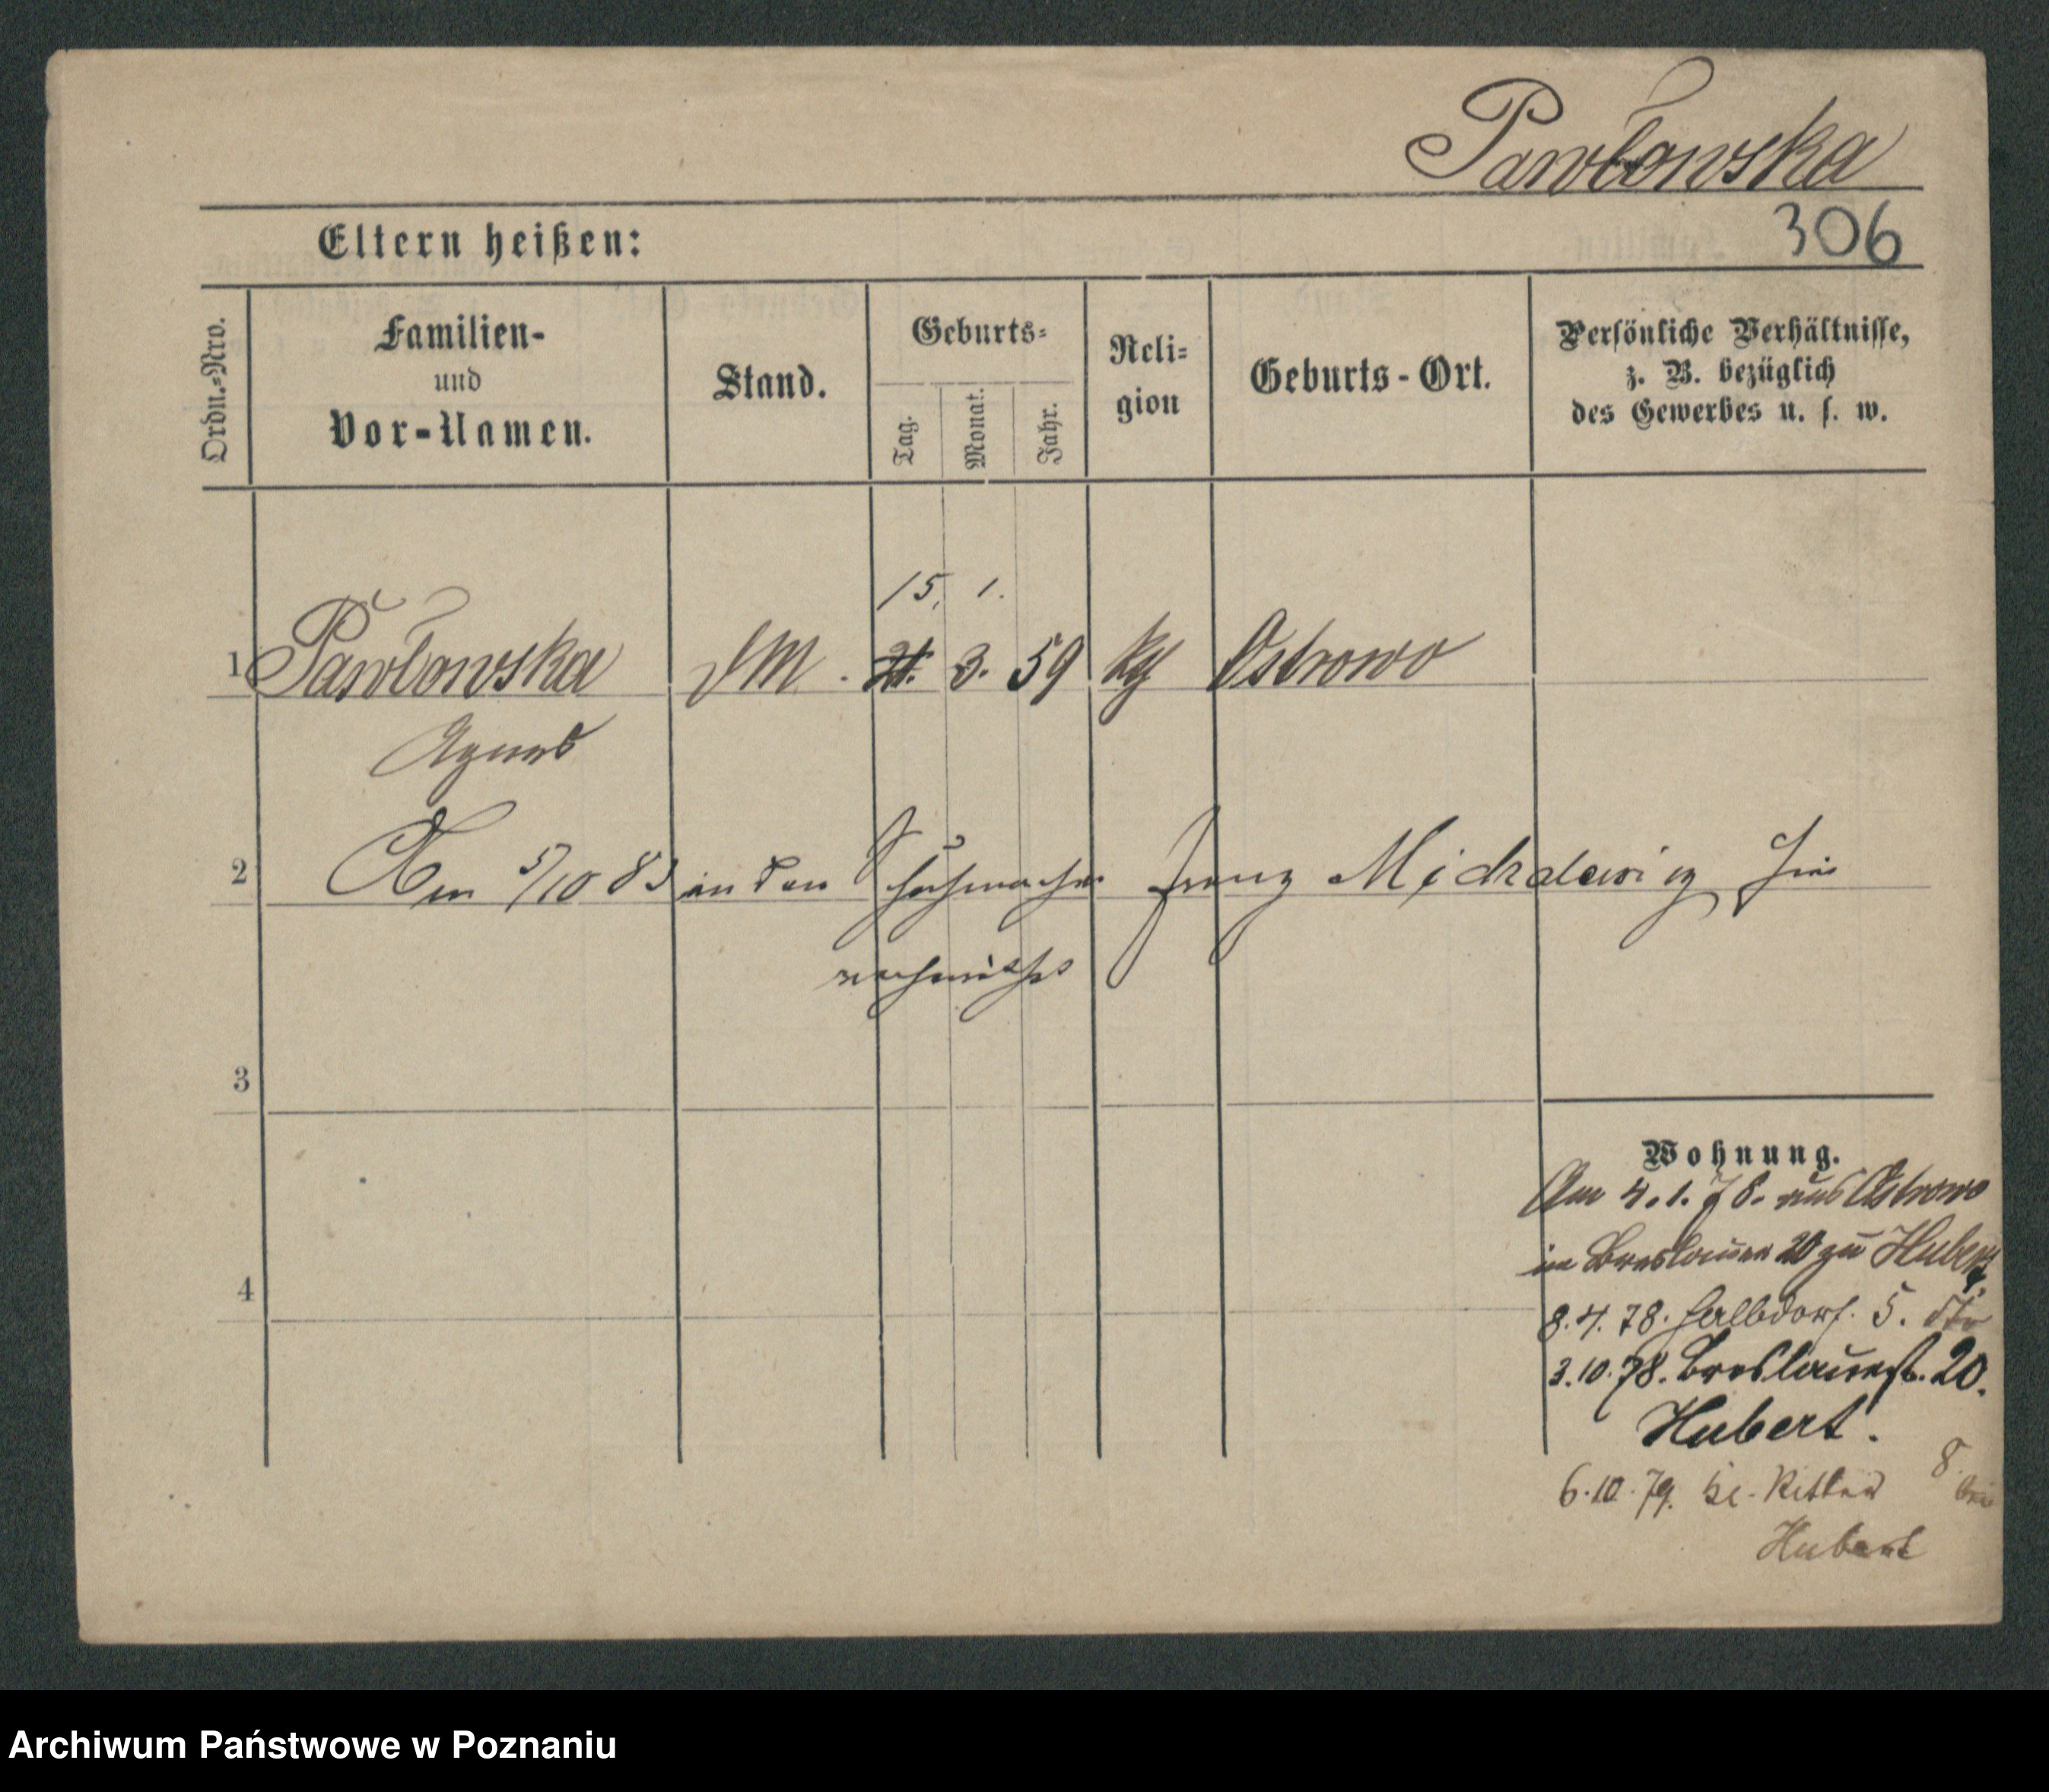 Pawłowska
306
Eltern heißen:
Ordn.-Nro.
Familien-
und
Vor-Namen.
Stand.
Geburts-
Tag.
Monat.
Jahr.
Reli-
gion
Geburts-Ort.
Persönliche Verhältnisse,
z. B. bezüglich
des Gewerbes u. s. w.
15. 1.
1 Pawłowska DM. 21. 3. 59 kth Ostrowo
Agnes
2 Am 5/10 83 an den Schuhmacher Franz Michalewicz hier
verheirathet
3
4
Wohnung.
Am 4.1.78. aus Ostrowo
in Breslauer 20 zu Hubert
8.4.78. Halbdorf. 5. dto
3.10.78. Breslauerst. 20.
Hubert.
6.10.79. Kl. Ritter 8
bei
Hubert
Archiwum Państwowe w Poznaniu